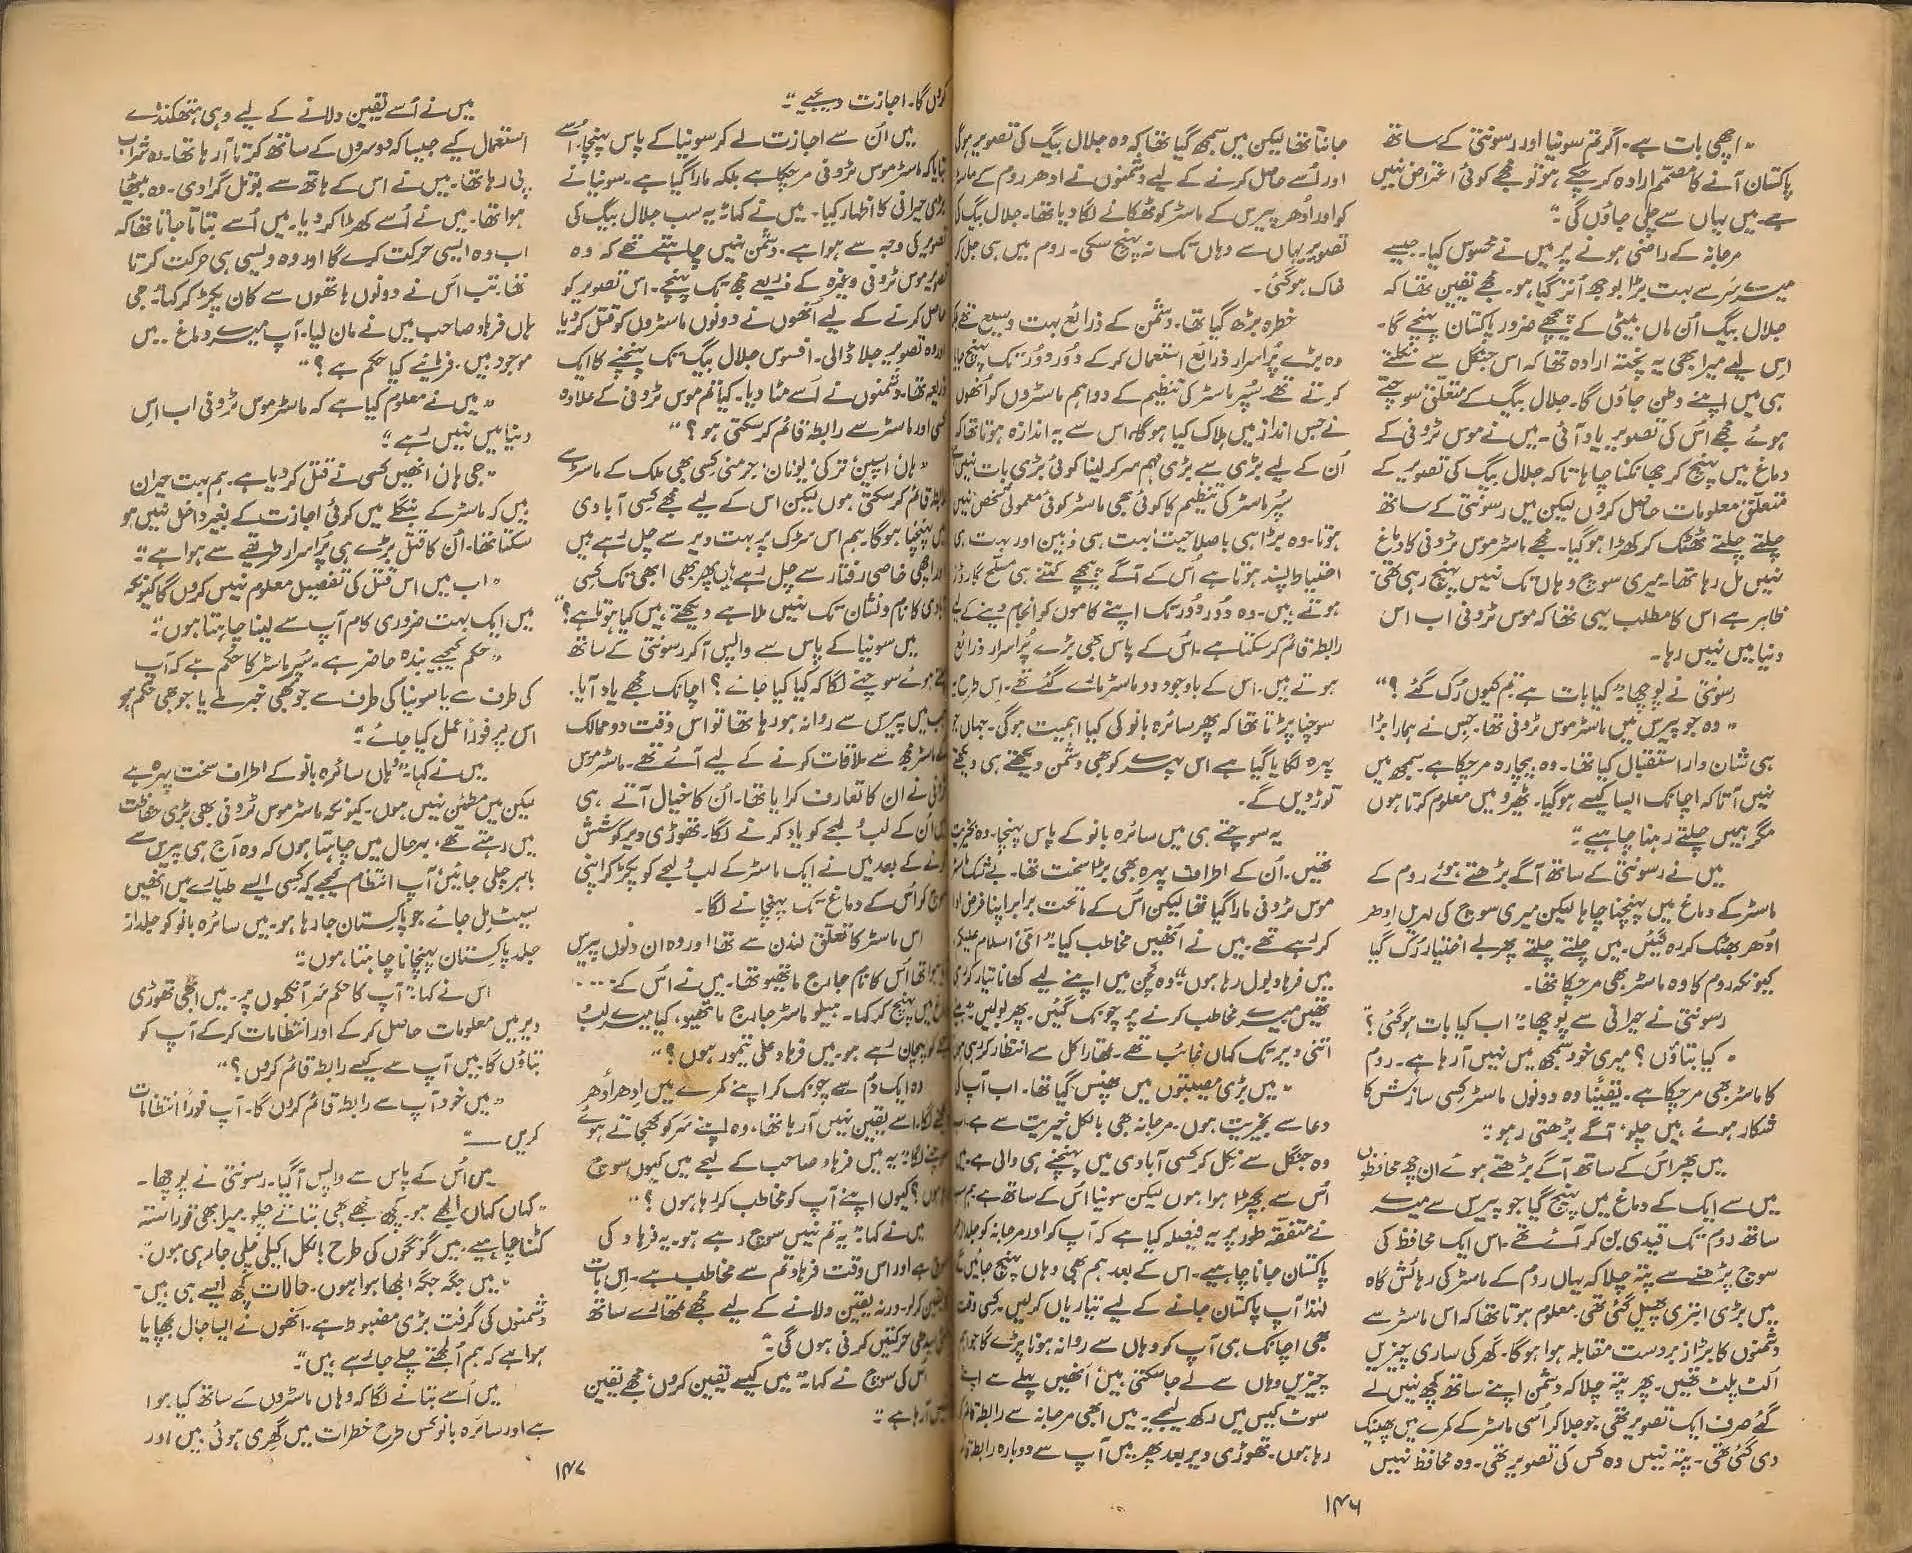 "اچھی بات ہے۔ اگر تم سونیا اور رسونتی کے ساتھ
پاکستان آنے کا مصمم ارادہ کر چکے ہو تو مجھے کوئی اعتراض نہیں
ہے۔ میں یہاں سے چلی جاؤں گی"۔
مرجانہ کے راضی ہونے پر میں نے محسوس کیا۔ جیسے
میرے سر سے بہت بڑا بوجھ اتر گیا ہو۔ مجھے یقین تھا کہ
جلال بیگ اُن ماں بیٹی کے پیچھے ضرور پاکستان پہنچے گا۔
اِس لیے میرا بھی یہ پختہ ارادہ تھا کہ اس جنگل سے نکلتے
ہی میں اپنے وطن جاؤں گا۔ جلال بیگ کے متعلق سوچتے
ہوئے مجھے اُس کی تصویر یاد آئی۔ میں نے موس ٹروفی کے
دماغ میں پہنچ کر جھانکنا چاہا تاکہ جلال بیگ کی تصویر کے
متعلق معلومات حاصل کروں لیکن میں رسونتی کے ساتھ
چلتے چلتے ٹھٹک کر کھڑا ہو گیا۔ مجھے ماسٹر موس ٹروفی کا دماغ
نہیں مل رہا تھا۔ میری سوچ وہاں تک نہیں پہنچ رہی تھی۔
ظاہر ہے اس کا مطلب یہی تھا کہ موس ٹروفی اب اس
دنیا میں نہیں رہا۔
رسونتی نے پوچھا "کیا بات ہے، تم کیوں رُک گئے؟"
"وہ جو پیرس میں ماسٹر موس ٹروفی تھا۔ جس نے ہمارا بڑا
ہی شان دار استقبال کیا تھا۔ وہ بیچارہ مر چکا ہے۔ سمجھ میں
نہیں آتا کہ اچانک ایسا کیسے ہو گیا۔ ٹھہرو میں معلوم کرتا ہوں
مگر ہمیں چلتے رہنا چاہیے"۔
میں نے رسونتی کے ساتھ آگے بڑھتے ہوئے روم کے
ماسٹر کے دماغ میں پہنچنا چاہا لیکن میری سوچ کی لہریں اِدھر
اُدھر بھٹک کر رہ گئیں۔ میں چلتے چلتے پھر بے اختیار رُک گیا
کیونکہ روم کا وہ ماسٹر بھی مر چکا تھا۔
رسونتی نے حیرانی سے پوچھا "اب کیا بات ہو گئی؟
"کیا بتاؤں؟ میری خود سمجھ میں نہیں آ رہا ہے۔ روم
کا ماسٹر بھی مر چکا ہے۔ یقیناً وہ دونوں ماسٹر کِسی سازش کا
شکار ہوئے ہیں چلو، آگے بڑھتی رہو"۔
میں پھر اُس کے ساتھ آگے بڑھتے ہوئے ان چھ محافظوں
میں سے ایک کے دماغ میں پہنچ گیا جو پیرس سے میرے
ساتھ روم تک قیدی بن کر آئے تھے۔ اس ایک محافظ کی
سوچ پڑھنے سے پتہ چلا کہ یہاں روم کے ماسٹر کی رہائش گاہ
میں بڑی ابتری پھیل گئی تھی۔ معلوم ہوتا تھا کہ اس ماسٹر سے
دشمنوں کا بڑا زبردست مقابلہ ہوا ہو گا۔ گھر کی ساری چیزیں
اُلٹ پلٹ تھیں۔ پھر پتہ چلا کہ دشمن اپنے ساتھ کچھ نہیں لے
گئے صرف ایک تصویر تھی جو جلا کر اُسی ماسٹر کے کمرے میں پھینک
دی گئی تھی۔ پتہ نہیں وہ کس کی تصویر تھی۔ وہ محافظ نہیں
جانتا تھا لیکن میں سمجھ گیا تھا کہ وہ جلال بیگ کی تصویر ہوگی
اور اُسے حاصل کرنے کے لیے دشمنوں نے ادھر روم کے ماسٹر
کو اور اُدھر پیرس کے ماسٹر کو ٹھکانے لگا دیا تھا۔ جلال بیگ کی
تصویر یہاں سے وہاں تک نہ پہنچ سکی۔ روم میں ہی جل کر
خاک ہو گئی۔
خطرہ بڑھ گیا تھا۔ دشمن کے ذرائع بہت وسیع تھے
وہ بڑے پُراسرار ذرائع استعمال کر کے دُور دُور تک پہنچ جایا
کرتے تھے۔ سُپر ماسٹر کی تنظیم کے دو اہم ماسٹروں کو اُنھوں
نے جس انداز میں ہلاک کیا ہو گا، اس سے یہ اندازہ ہوتا تھا کہ
اُن کے لیے بڑی سے بڑی مہم سر کر لینا کوئی بڑی بات نہیں ہے
سُپر ماسٹر کی تنظیم کا کوئی بھی ماسٹر کوئی معمولی شخص نہیں
ہوتا۔ وہ بڑا ہی باصلاحیت، بہت ہی ذہین اور بہت ہی
احتیاط پسند ہوتا ہے اُس کے آگے پیچھے کتنے ہی مسلح گارڈز
ہوتے ہیں۔ وہ دُور دُور تک اپنے کاموں کو انجام دینے کے لیے
رابطہ قائم کر سکتا ہے۔ اُس کے پاس بھی بڑے پُراسرار ذرائع
ہوتے ہیں۔ اس کے باوجود دو ماسٹر مارے گئے تھے۔ اِس طرح
سوچنا پڑتا تھا کہ پھر سائرہ بانو کی کیا اہمیت ہو گی۔ جہاں جو
پہرہ لگایا گیا ہے اس پہرے کو بھی دشمن دیکھتے ہی دیکھتے
توڑ دیں گے۔
یہ سوچتے ہی میں سائرہ بانو کے پاس پہنچا۔ وہ بخیریت
تھیں۔ اُن کے اطراف پہرہ بھی بڑا سخت تھا۔ بے شک ماسٹر
موس ٹروفی مارا گیا تھا لیکن اُس کے ماتحت برابر اپنا فرض ادا
کر رہے تھے۔ میں نے اُنھیں مخاطب کیا "امی! اسلام علیکم،
میں فرہاد بول رہا ہوں"۔ وہ کچن میں اپنے لیے کھانا تیار کر رہی
تھیں میرے مخاطب کرنے پر چونک گئیں۔ پھر بولیں "بیٹے
اتنی دیر تک کہاں غائب تھے۔ تمہارا کل سے انتظار کر رہی ہوں
"میں بڑی مصیبتوں میں پھنس گیا تھا۔ اب آپ کی
دعا سے بخیریت ہوں۔ مرجانہ بھی بالکل خیریت سے ہے۔ اب
وہ جنگل سے نکل کر کسی آبادی میں پہنچنے ہی والی ہے۔ میں
اُس سے بچھڑا ہوا ہوں لیکن سونیا اُس کے ساتھ ہے۔ ہم سب
نے متفقہ طور پر یہ فیصلہ کیا ہے کہ آپ کو اور مرجانہ کو جلد از جلد
پاکستان جانا چاہیے۔ اس کے بعد ہم بھی وہاں پہنچ جائیں گے
لہٰذا آپ پاکستان جانے کے لیے تیاریاں کر لیں۔ کسی وقت
بھی اچانک ہی آپ کو وہاں سے روانہ ہونا پڑے گا جو اہم
چیزیں وہاں سے لے جا سکتی ہیں، اُنھیں پہلے سے اپنے
سوٹ کیس میں رکھ لیجیے۔ میں ابھی مرجانہ سے رابطہ قائم کر
رہا ہوں۔ تھوڑی دیر بعد پھر میں آپ سے دوبارہ رابطہ قائم
۱۴۶
کروں گا۔ اجازت دیجیے"۔
میں اُن سے اجازت لے کر سونیا کے پاس پہنچا، اُسے
بتایا کہ ماسٹر موس ٹروفی مر چکا ہے بلکہ مارا گیا ہے۔ سونیا نے
بڑی حیرانی کا اظہار کیا۔ میں نے کہا "یہ سب جلال بیگ کی
تصویر کی وجہ سے ہوا ہے۔ دشمن نہیں چاہتے تھے کہ وہ
تصویر موس ٹروفی وغیرہ کے ذریعے مجھ تک پہنچے۔ اس تصویر کو
حاصل کرنے کے لیے اُنھوں نے دونوں ماسٹروں کو قتل کر دیا
اور وہ تصویر جلا ڈالی۔ افسوس جلال بیگ تک پہنچنے کا ایک
ذریعہ تھا۔ دشمنوں نے اُسے مٹا دیا۔ کیا تم موس ٹروفی کے علاوہ
کسی اور ماسٹر سے رابطہ قائم کر سکتی ہو؟"
"ہاں اسپین، ترکی، یونان، جرمنی کِسی بھی ملک کے ماسٹر سے
رابطہ قائم کر سکتی ہوں لیکن اس کے لیے مجھے کسی آبادی
میں پہنچنا ہو گا۔ ہم اس سڑک پر بہت دیر سے چل رہے ہیں
اور اچھی خاصی رفتار سے چل رہے ہیں پھر بھی ابھی تک کسی
آبادی کا نام و نشان تک نہیں ملا ہے دیکھتے ہیں کیا ہوتا ہے؟"
میں سونیا کے پاس سے واپس آ کر رسونتی کے ساتھ
چلتے ہوئے سوچنے لگا کہ کیا کیا جائے؟ اچانک مجھے یاد آیا۔
جب میں پیرس سے روانہ ہو رہا تھا تو اس وقت دو ممالک
کے ماسٹر مجھ سے ملاقات کرنے کے لیے آئے تھے۔ ماسٹر موس
ٹروفی نے ان کا تعارف کرایا تھا۔ اُن کا خیال آتے ہی
میں اُن کے لب و لہجے کو یاد کرنے لگا۔ تھوڑی دیر کوشش
کرنے کے بعد میں نے ایک ماسٹر کے لب و لہجے کو پکڑ کر اپنی
سوچ کو اُس کے دماغ تک پہنچانے لگا۔
اس ماسٹر کا تعلق لندن سے تھا اور وہ ان دنوں پیرس
آیا ہوا تھا اُس کا نام جارج ماتھیو تھا۔ میں نے اُس کے ....
دماغ میں پہنچ کر کہا۔ "ہیلو ماسٹر جارج ماتھیو، کیا میرے لب و
لہجے کو پہچان رہے ہو۔ میں فرہاد علی تیمور ہوں؟"
وہ ایک دم سے چونک کر اپنے کمرے میں اِدھر اُدھر
دیکھنے لگا، اُسے یقین نہیں آ رہا تھا۔ وہ اپنے سر کو کھجاتے ہوئے
سوچنے لگا "یہ میں فرہاد صاحب کے لہجے میں کیوں سوچ
رہا ہوں؟ کیوں اپنے آپ کو مخاطب کر رہا ہوں؟"
میں نے کہا "یہ تم نہیں سوچ رہے ہو۔ یہ فرہاد کی
سوچ ہے اور اس وقت فرہاد تم سے مخاطب ہے۔ اِس بات
کا یقین کر لو۔ ورنہ یقین دلانے کے لیے مجھے تمھارے ساتھ
سیدھی حرکتیں کرنی ہوں گی"۔
اُس کی سوچ نے کہا "میں کیسے یقین کروں، مجھے یقین
نہیں آ رہا ہے"۔
میں نے اُسے یقین دلانے کے لیے وہی ہتھکنڈے
استعمال کیے جیسا کہ دوسروں کے ساتھ کرتا آ رہا تھا۔ وہ شراب
پی رہا تھا۔ میں نے اس کے ہاتھ سے بوتل گرا دی۔ وہ بیٹھا
ہوا تھا۔ میں نے اُسے کھڑا کر دیا۔ میں اُسے بتاتا جاتا تھا کہ
اب وہ ایسی حرکت کرے گا اور وہ ویسی ہی حرکت کرتا
تھا۔ تب اُس نے دونوں ہاتھوں سے کان پکڑ کر کہا۔ "جی
ہاں فرہاد صاحب میں نے مان لیا۔ آپ میرے دماغ میں
موجود ہیں۔ فرمایئے کیا حکم ہے؟"
"میں نے معلوم کیا ہے کہ ماسٹر موس ٹروفی اب اِس
دنیا میں نہیں رہے"۔
"جی ہاں انھیں کسی نے قتل کر دیا ہے۔ ہم بہت حیران
ہیں کہ ماسٹر کے بنگلے میں کوئی اجازت کے بغیر داخل نہیں ہو
سکتا تھا۔ اُن کا قتل بڑے ہی پُراسرار طریقے سے ہوا ہے"۔
"اب میں اس قتل کی تفصیل معلوم نہیں کروں گا کیونکہ
میں ایک بہت ضروری کام آپ سے لینا چاہتا ہوں"۔
"حکم کیجیے بندہ حاضر ہے۔ سُپر ماسٹر کا حکم ہے کہ آپ
کی طرف سے یا سونیا کی طرف سے جو بھی خبر ملے یا جو بھی حکم ہو
اس پر فوراً عمل کیا جائے"۔
میں نے کہا۔ "وہاں سائرہ بانو کے اطراف سخت پہرہ ہے
لیکن میں مطمئن نہیں ہوں۔ کیونکہ ماسٹر موس ٹروفی بھی بڑی حفاظت
میں رہتے تھے، بہرحال میں چاہتا ہوں کہ وہ آج ہی پیرس سے
باہر چلی جائیں، آپ انتظام کیجیے کہ کِسی ایسے طیارے میں انھیں
سیٹ مل جائے جو پاکستان جا رہا ہو۔ میں سائرہ بانو کو جلد از
جلد پاکستان پہنچانا چاہتا ہوں"۔
اس نے کہا "آپ کا حکم سر آنکھوں پر۔ میں ابھی تھوڑی
دیر میں معلومات حاصل کر کے اور انتظامات کر کے آپ کو
بتاؤں گا۔ میں آپ سے کیسے رابطہ قائم کروں؟"
"میں خود آپ سے رابطہ قائم کروں گا۔ آپ فوراً انتظامات
کریں —"
میں اُس کے پاس سے واپس آ گیا۔ رسونتی نے پوچھا۔
"کہاں کہاں اُلجھے ہو۔ کچھ مجھے بھی بتاتے چلو۔ میرا بھی تو راستہ
کٹنا چاہیے۔ میں گونگوں کی طرح بالکل اکیلی چلی جا رہی ہوں"۔
"میں جگہ جگہ اُلجھا ہوا ہوں۔ حالات کچھ ایسے ہی ہیں۔
دشمنوں کی گرفت بڑی مضبوط ہے۔ اُنھوں نے ایسا جال بچھایا
ہوا ہے کہ ہم اُلجھتے چلے جا رہے ہیں"۔
میں اُسے بتانے لگا کہ وہاں ماسٹروں کے ساتھ کیا ہوا
ہے اور سائرہ بانو کس طرح خطرات میں گھری ہوئی ہیں اور
۱۴۷